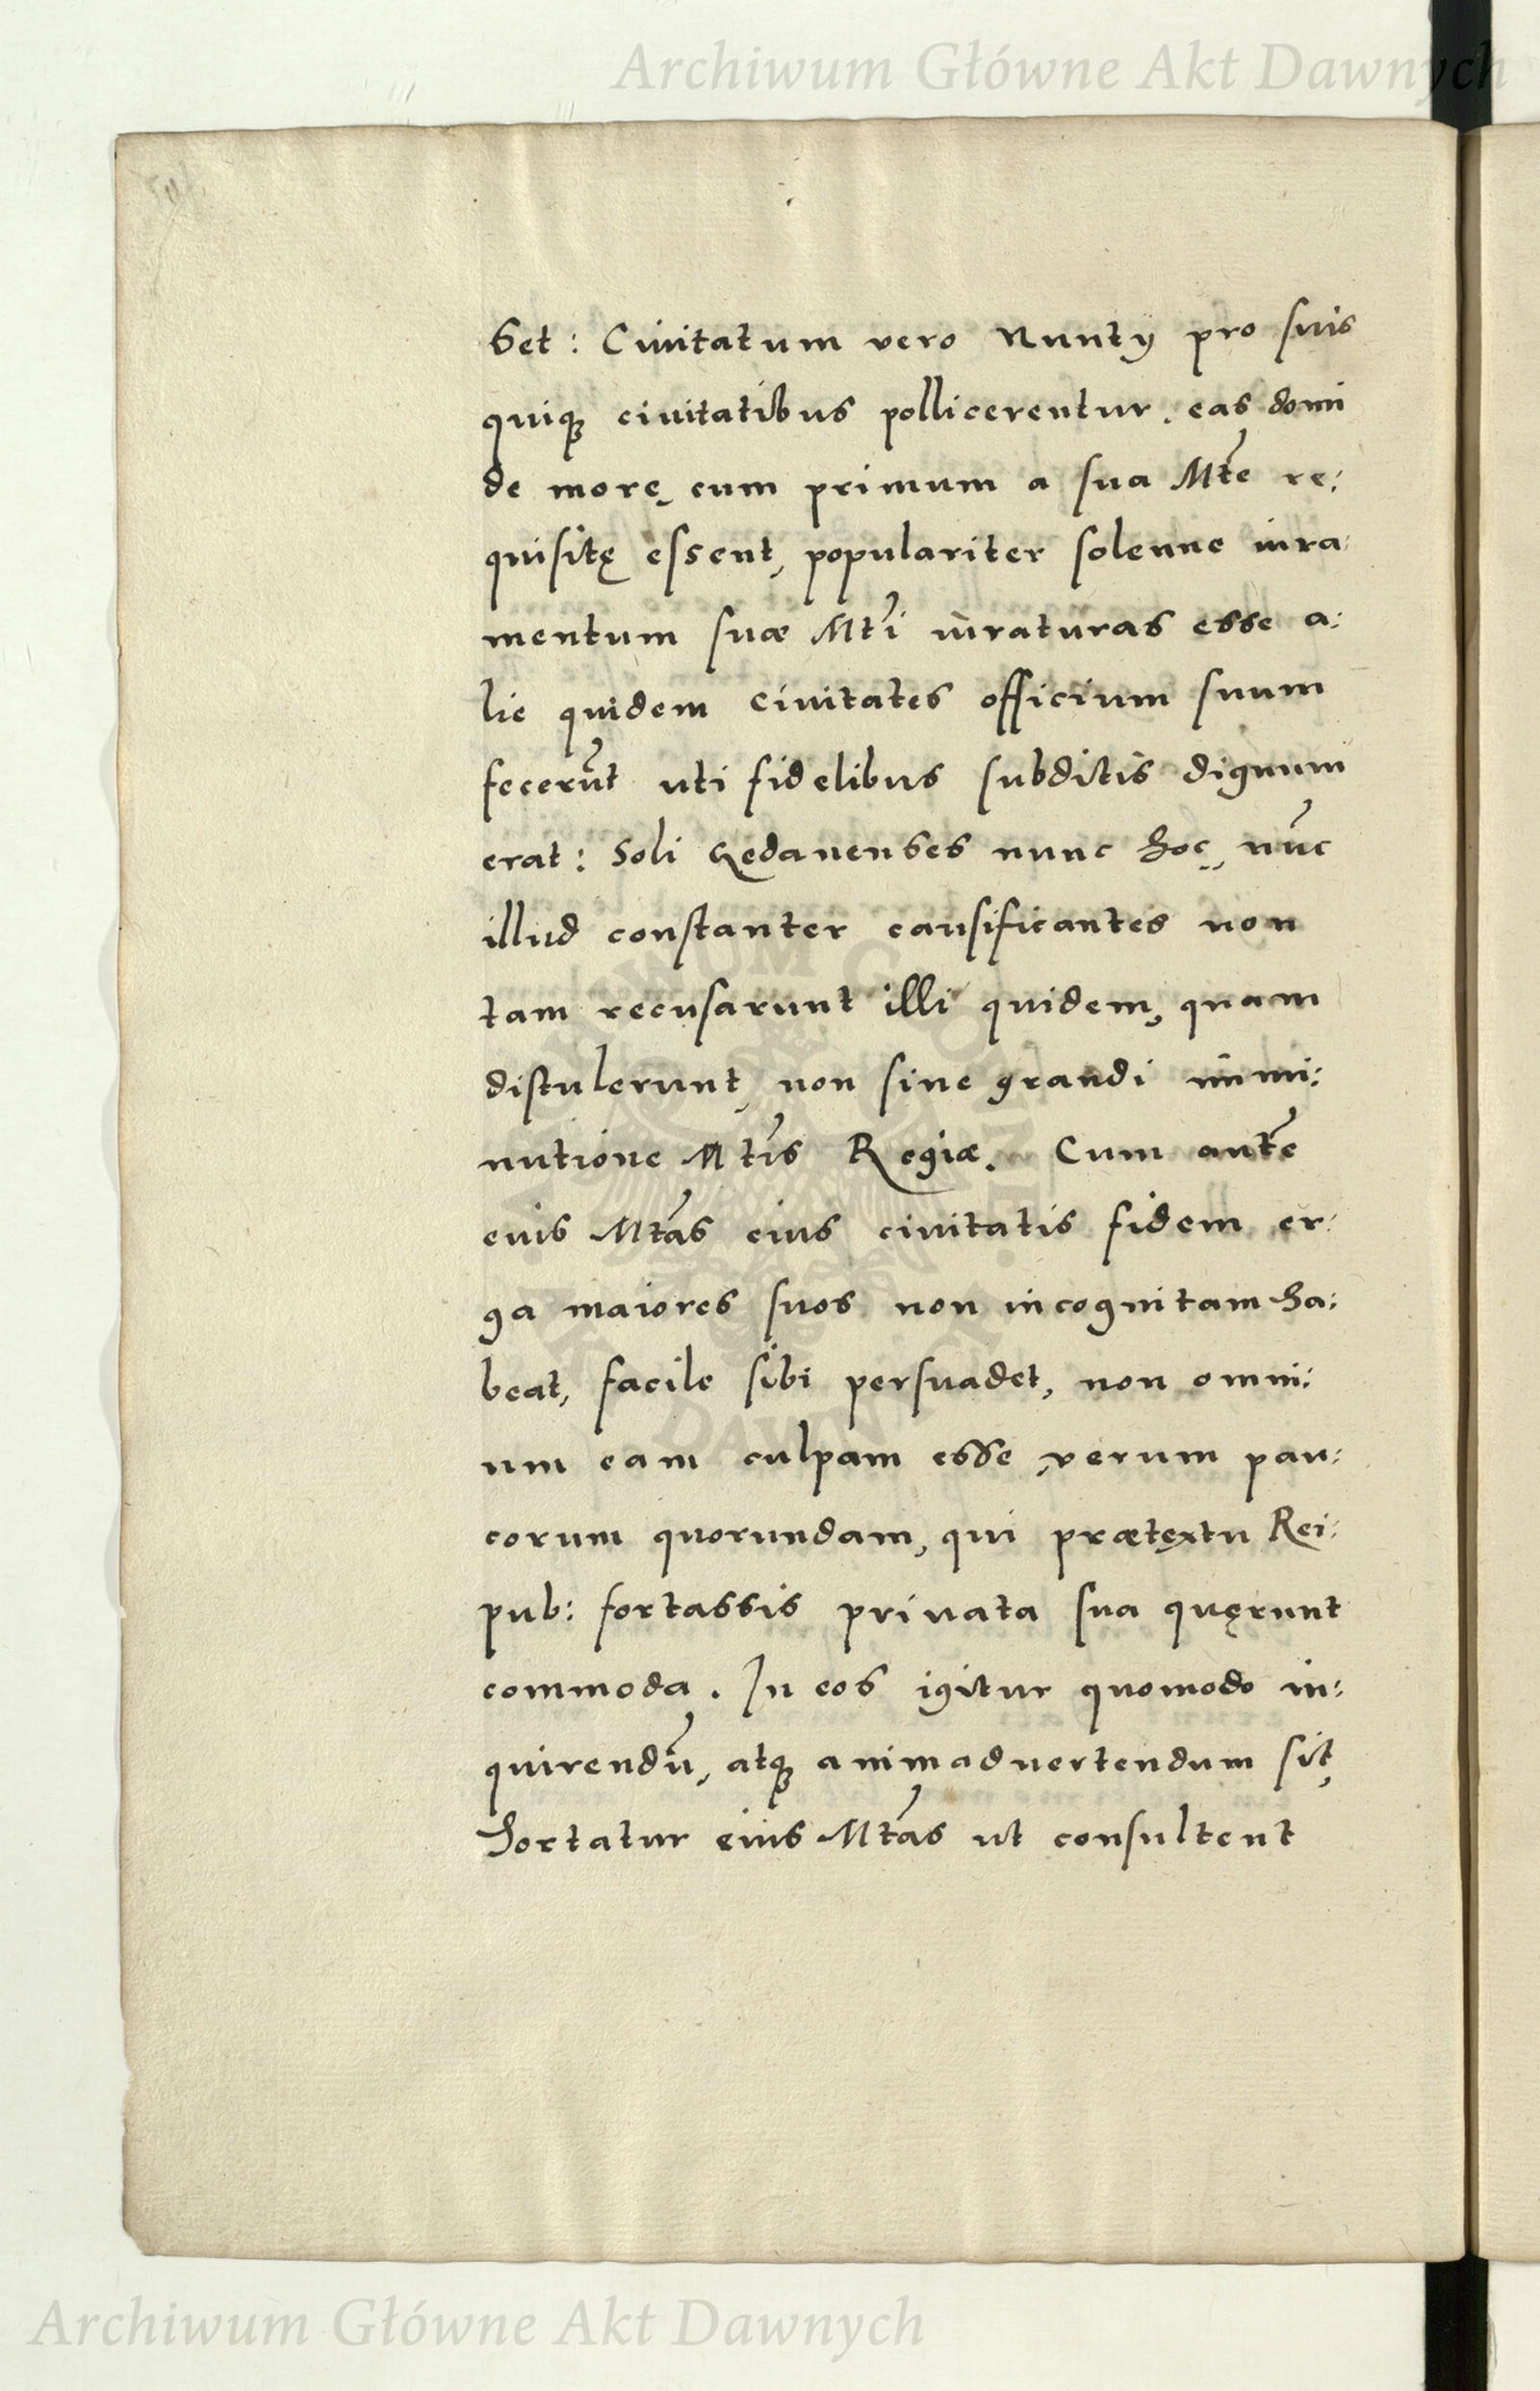 Archiwum Główne Akt Dawnych
set: Ciuitatum vero Nuntÿ pro suis
quiqꝫ ciuitatibus pollicerentur, eas domi
de more, cum primum a sua Mt̃e re:
quisitę essent, populariter solenne iura:
mentum suæ Mt̃i iuraturas esse a:
lie quidem ciuitates officium suum
fecerũt uti fidelibus subditis dignum
erat: Soli Gedanenses nunc hoc, nũc
illud constanter causificantes non
tam recusarunt illi quidem, quam
distulerunt, non sine grandi immi:
nutione Mt̃is Regiæ. Cum aut̃e
euis Mt̃as eius ciuitatis fidem er:
ga maiores suos non incognitam ha:
beat, facile sibi persuadet, non omni:
um eam culpam esse, verum pau:
corum quorundam, qui prætextu Rei:
pub: fortassis priuata sua quęrunt
commoda. In eos igitur quomodo in:
quirendũ, atqꝫ animaduertendum sit,
hortatur eius Mt̃as ut consultent
Archiwum Główne Akt Dawnych